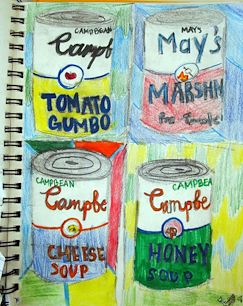 CAMPBEAN
Campf
TOMATO
GUMBO
MAY'S
May's
MARSHN
CAMPBEAN
Campbe
CHEESE
SOUP
CAMPBEA
Campbe
HONEY
SOUP